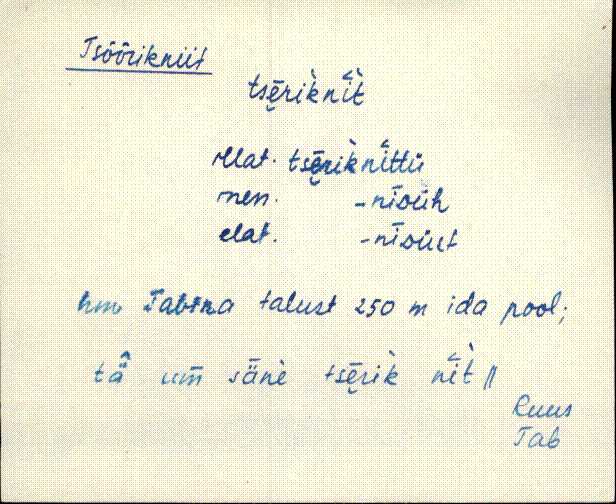 Tsõõrikniit
tsē̮rìknī̆t̀
illat. tsē̮rìknīttü
ines. -nīsüh
elat. -nīsüt
hm Tabina talust 250 m ida pool;
tä̂ um̄ sänè tsē̮rìk nī̆t̀ ||
Ruus
Tab